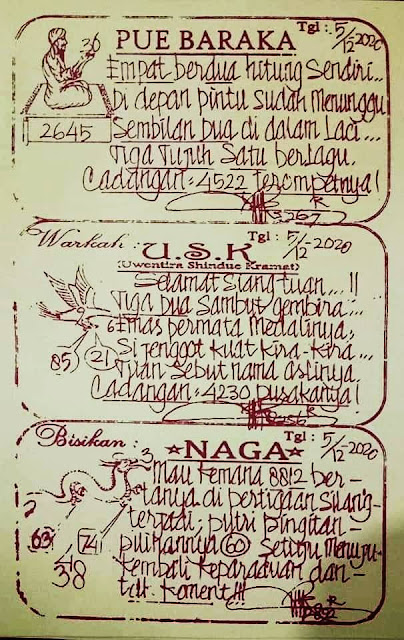 PUE BARAKA
Tgl : 5/12 2020
Empat berdua hitung Sendiri...
Di depan pintu sudah Menunggu
2645
Sembilan Dua di dalam Laci...
Tiga Tujuh Satu berlagu.
Cadangan : 4522 terompetnya!
3267
Warkah :
U.S.K
Tgl : 5/12-2020
(Uwentira Shindue Kramat)
Selamat Siang tuan...!!
Tiga Dua Sambut gembira...
6
Emas permata Medalinya,
85
21
Si jenggot kuat kira-kira...
Tuan Sebut nama aslinya.
Cadangan : 4230 pusakanya!
Bisikan :
NAGA
Tgl : 5/12 2020
3
Mau kemana 8812 ber-
tanya di pertigaan Silang-
2
terjadi, putri pingitan-
63
74
pilihannya 60
38
kembali keparaduan dan-
titik. Koment!!!